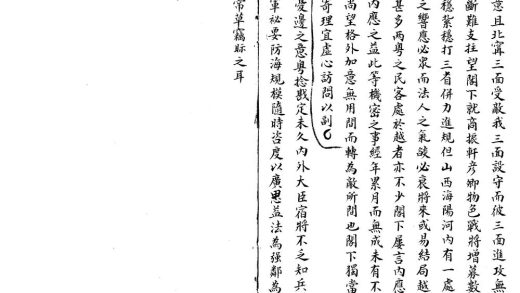 意且北寗三面受敵我三面設守而彼三面進攻無
斷難支拄望閣下就商振軒彥卿物色戰將增募數
穩紮穩打三者併力進規但山西海陽河內有一處
之響應必衆而法人之氣燄必衰將來或易結局越
甚多兩粤之民客處於越者亦不少閣下屢言內應
內應之益此等機密之事經年累月而無成未有不
尚望格外加意無用間而轉為敵所間也閣下獨當
寄理宜虛心訪問以副
憂邊之意粤捻戡定未久內外大臣宿將不乏知兵
軍祕要防海規模隨時咨度以廣思益法為强鄰為
常草竊眎之耳